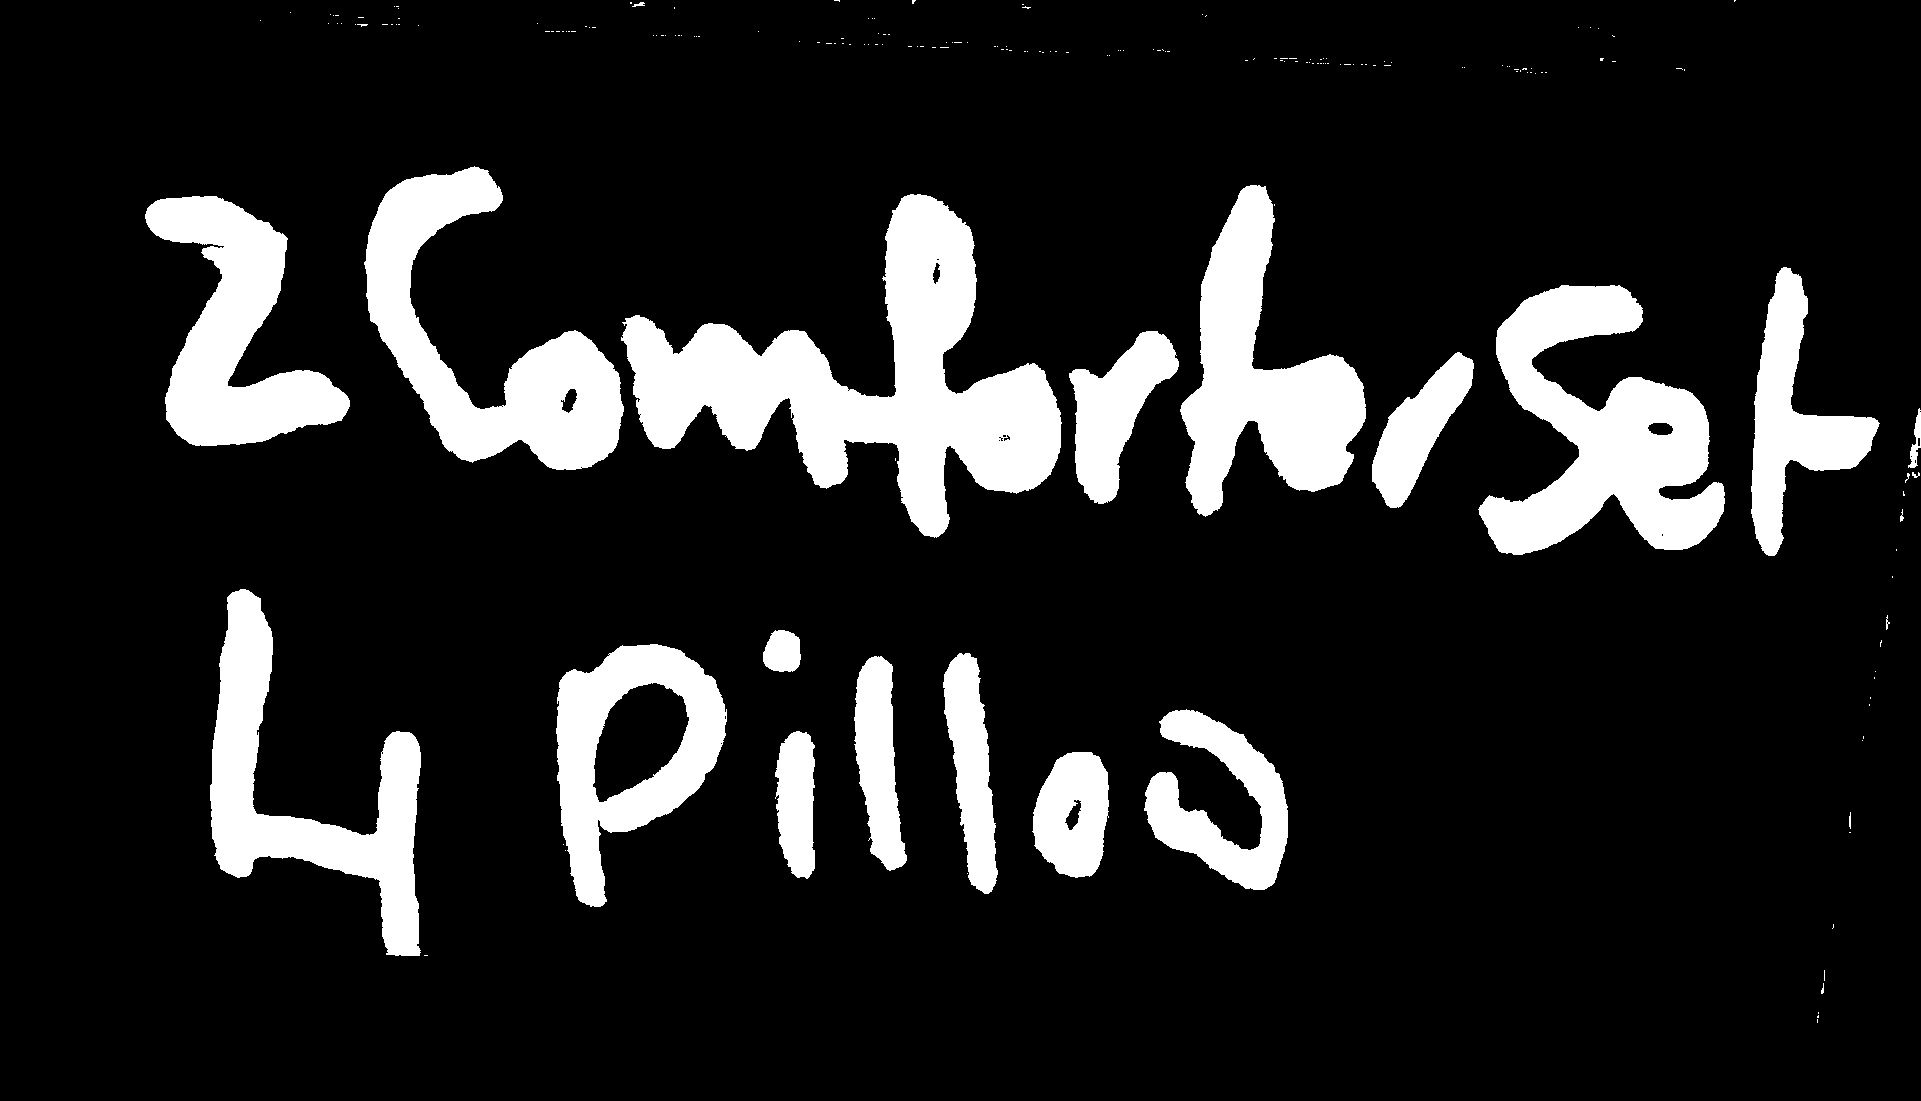 2 Comforter Set
4 Pillow